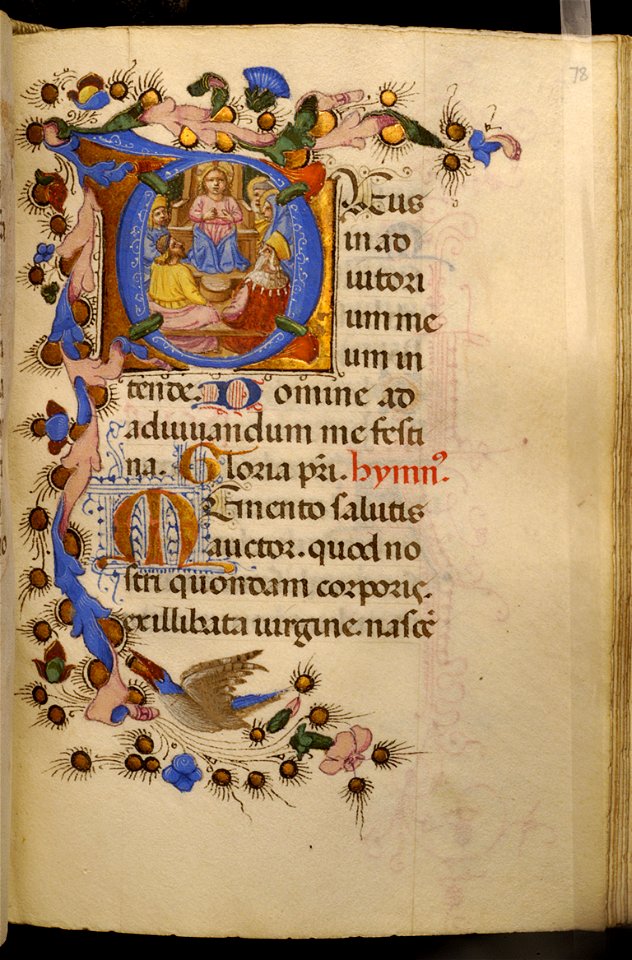 78
DEus
in ad
iutori
um me
um in
tende. Domine ad
adiuuandum me festi
na. Gloria pri. hymn⁹.
MEmento salutis
auctor. quod no
stri quondam corporis.
ex illibata uirgine. nascẽ